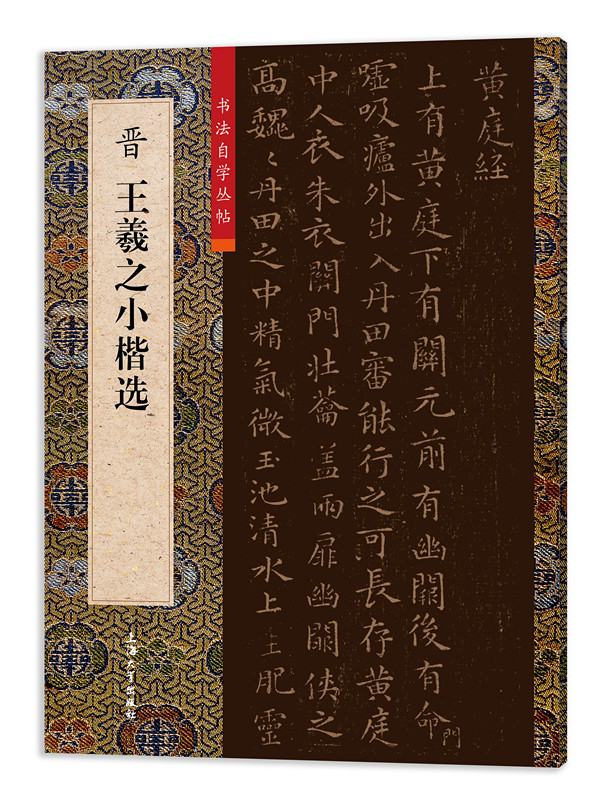 书法自学丛帖
晋 王羲之小楷选
黄庭経
上有黄庭下有關元前有幽闕後有命門
嘘吸廬外出入丹田審能行之可長存黄庭
中人衣朱衣關門壯籥盖兩扉幽闕俠之
高巍〻丹田之中精氣微玉池清水上生肥靈
上海大学出版社